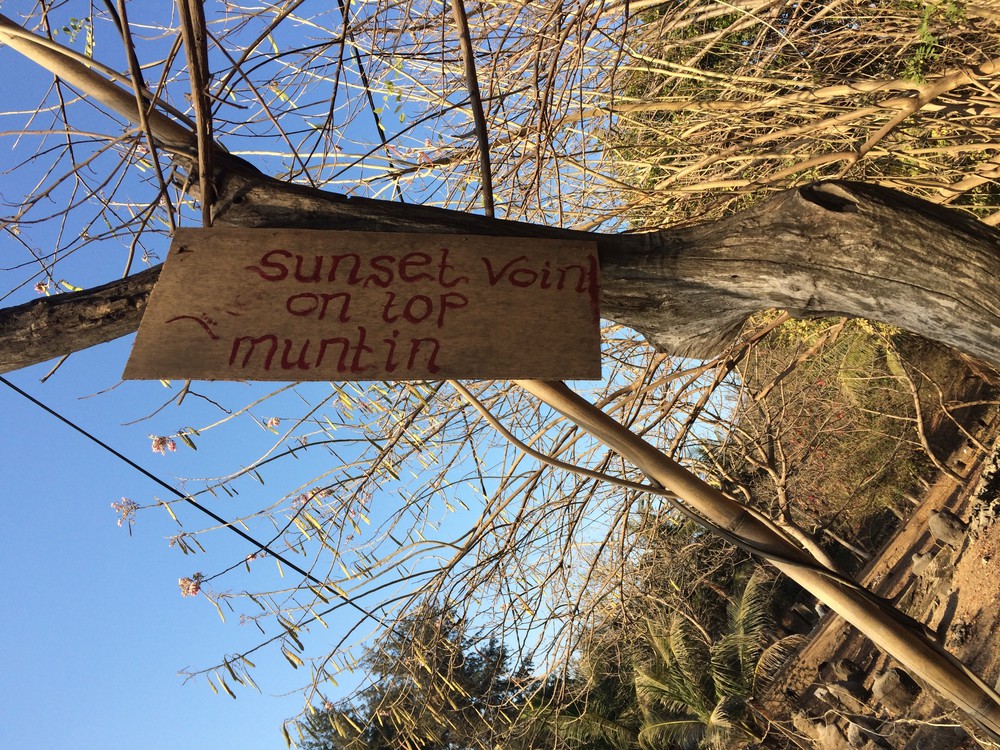 sunset Voint
on top
muntin